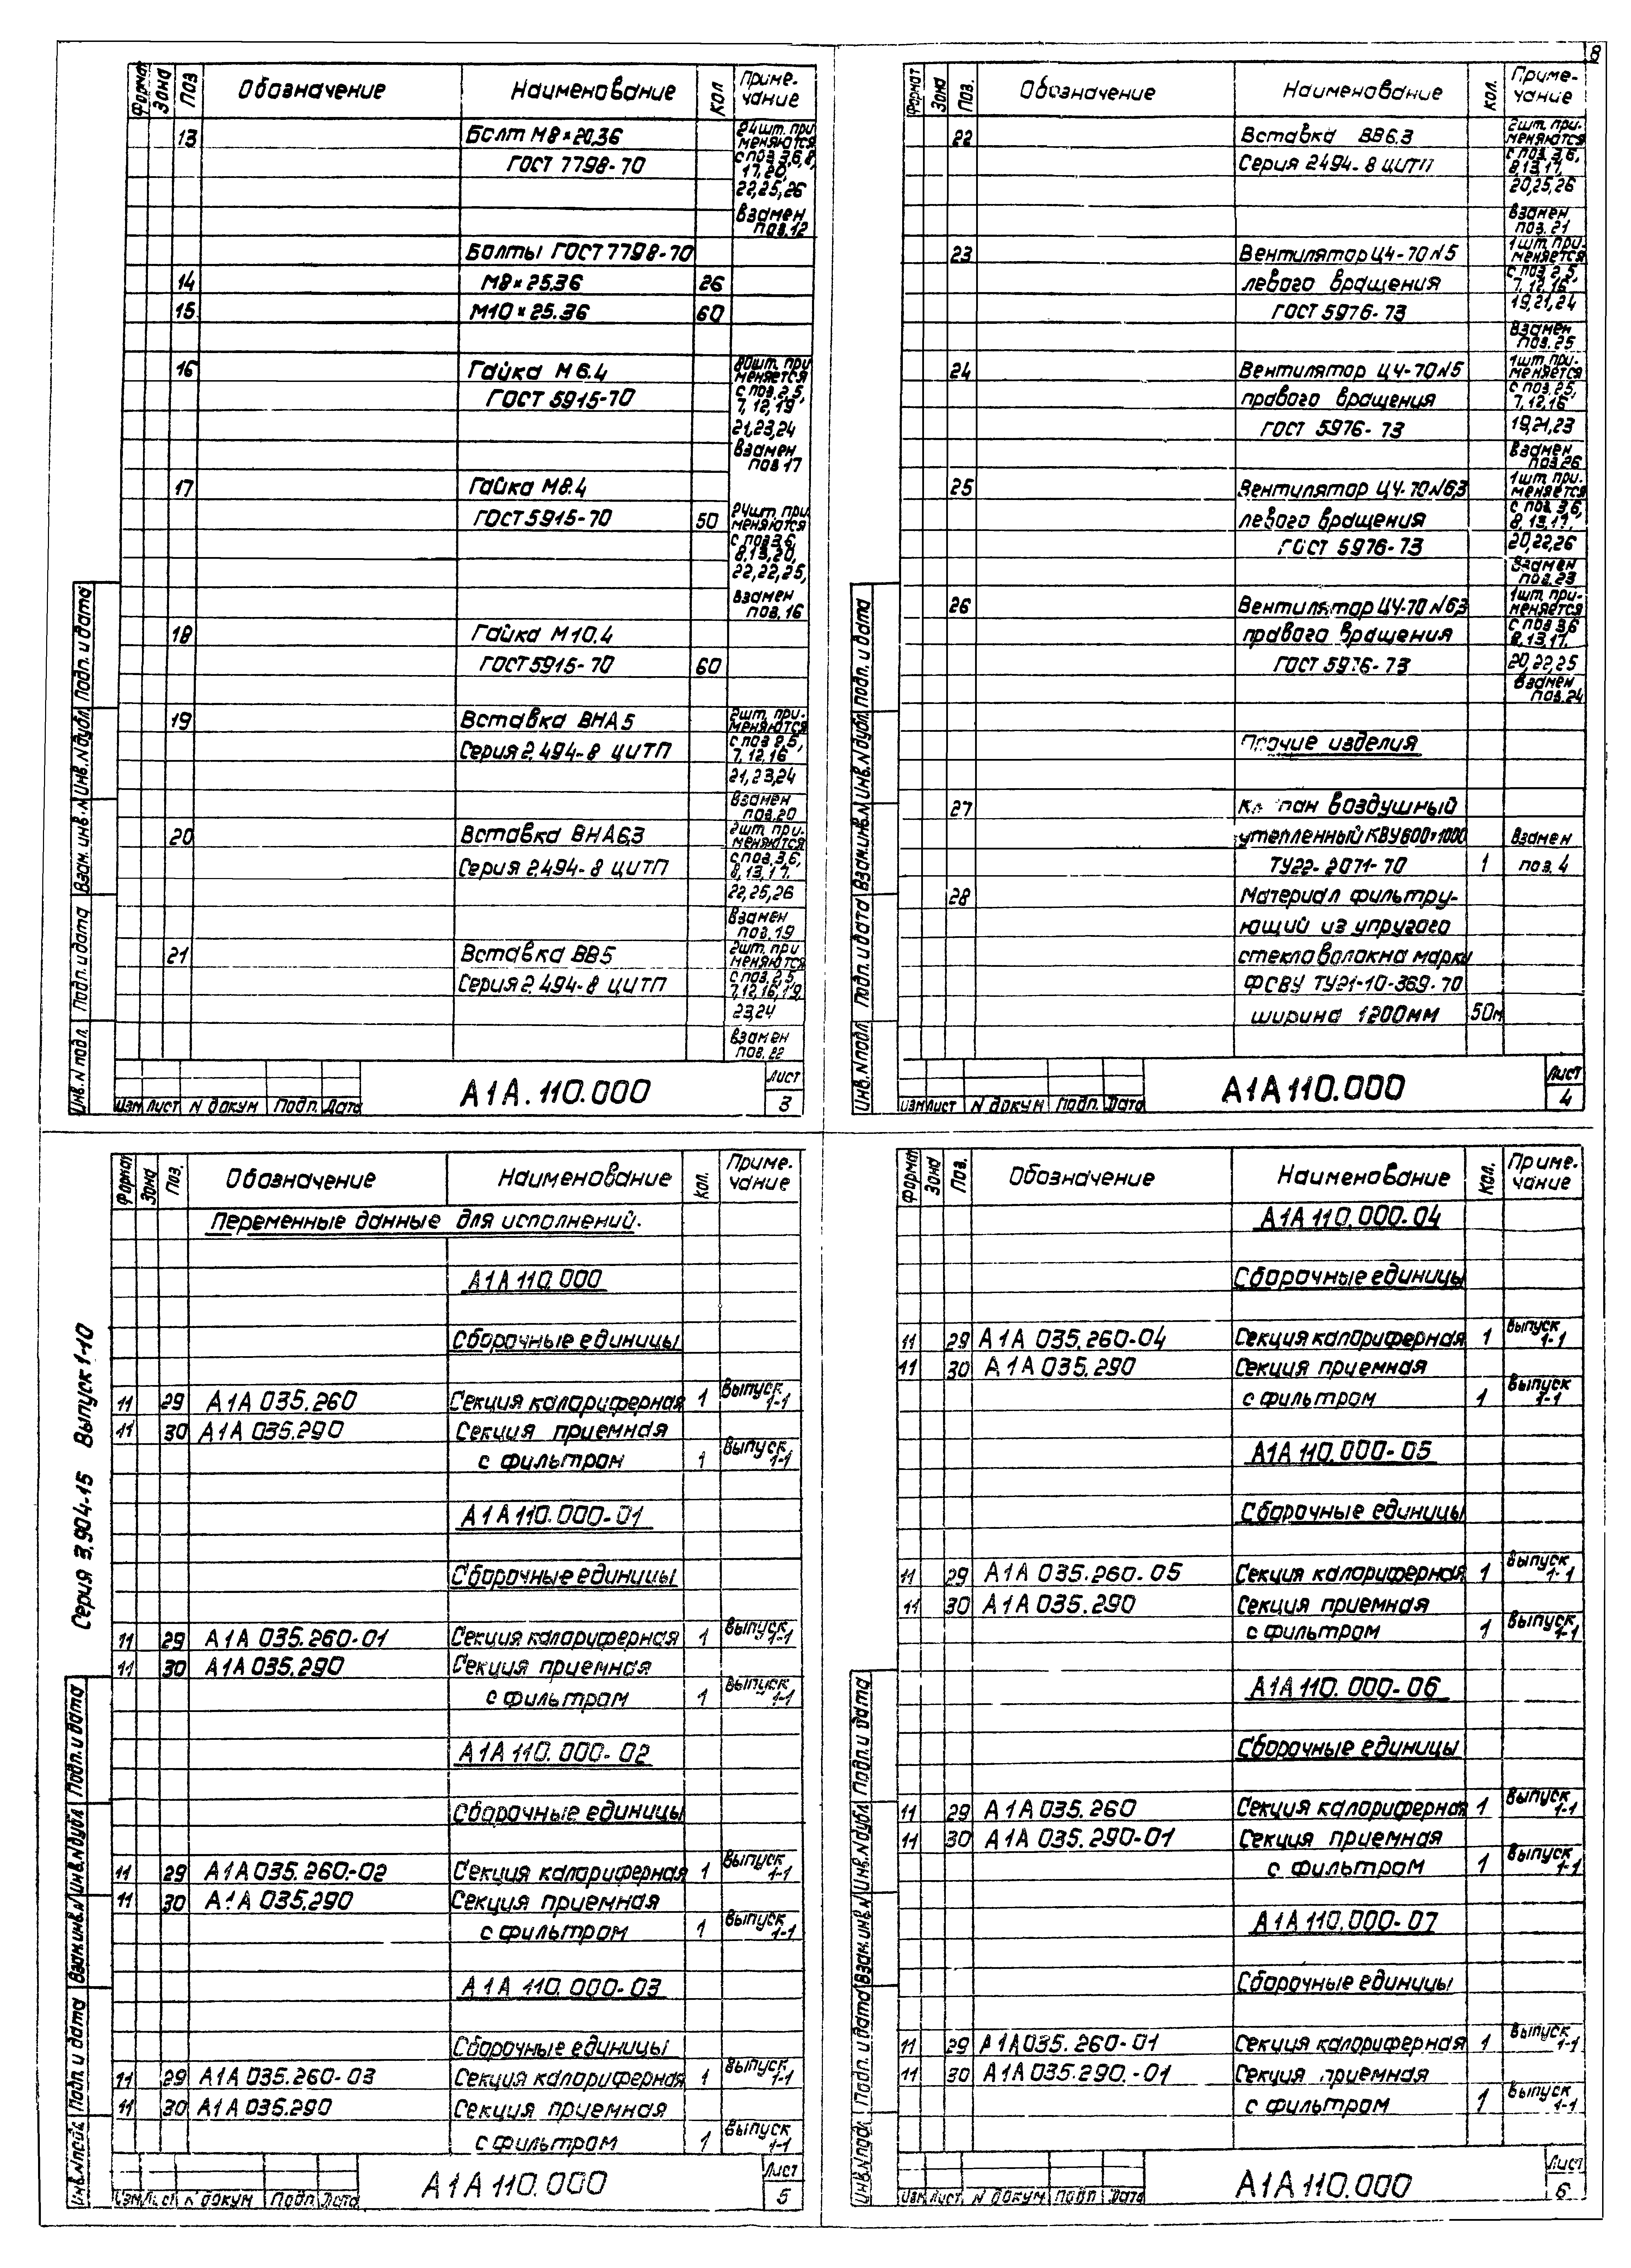 8
Формат Зона Поз Обозначение Наименование Кол Приме-
чание
13 Болт М8×20.36 24шт. при
меняются
ГОСТ 7798-70 с поз 3,6,8,
17,20,
22,25,26
взамен
поз.12
Болты ГОСТ 7798-70
14 М8×25.36 26
15 М10×25.36 60
16 Гайка М6.4 80шт. при
меняется
ГОСТ 5915-70 с поз. 2,5,
7,12,19,
21,23,24
взамен
поз 17
17 Гайка М8.4
ГОСТ 5915-70 50 24шт. при
меняются
с поз 3,6,
8,13,20,
22,22,25,
взамен
поз.16
18 Гайка М10.4
ГОСТ 5915-70 60
19 Вставка ВНА5 2шт. при-
меняются
Серия 2.494-8 ЦИТП с поз 2,5,
7,12,16
21,23,24
взамен
поз.20
20 Вставка ВНА6,3 2шт. при-
меняются
Серия 2.494-8 ЦИТП с поз. 3,6,
8,13,17,
22,25,26
взамен
поз.19
21 Вставка ВВ5 2шт. при
меняются
Серия 2.494-8 ЦИТП с поз. 2,5,
7,12,16,19,
23,24
взамен
поз.22
Инв.N подл. Подп. и дата Взам. инв. N Инв. N дубл. Подп. и дата
Изм Лист N докум Подп. Дата А1А.110.000 Лист
3
Формат Зона Поз. Обозначение Наименование Кол. Приме-
чание
22 Вставка ВВ6.3 2шт. при-
меняются
Серия 2.494-8 ЦИТП с поз. 3,6,
8,13,17,
20,25,26
взамен
поз.21
23 Вентилятор Ц4-70N5 1шт. при-
меняется
левого вращения с поз. 2,5,
7,12,16,
ГОСТ 5976-73 19,21,24
взамен
поз.25
24 Вентилятор Ц4-70N5 1шт. при-
меняется
правого вращения с поз. 2,5,
7,12,16
ГОСТ 5976-73 19,21,23
взамен
поз.26
25 Вентилятор Ц4-70N6,3 1шт. при-
меняется
левого вращения с поз 3,6,
8,13,17,
ГОСТ 5976-73 20,22,26
взамен
поз.23
26 Вентилятор Ц4-70N6,3 1шт. при-
меняется
правого вращения с поз 3,6
8,13,17,
ГОСТ 5976-73 20,22,25
взамен
поз.24
Прочие изделия
27 Клапан воздушный
утепленный КВУ600×1000 взамен
ТУ22-2071-70 1 поз. 4
28 Материал фильтру-
ющий из упругого
стекловолокна марки
ФСВУ ТУ21-10-369-70
ширина 1200мм 50м
Инв.N подл Подп. и дата Взам.инв.N Инв. N дубл. Подп. и дата
Изм Лист N докум Подп. Дата А1А110.000 Лист
4
Серия 3.904-15 Выпуск 1-10
Формат Зона Поз. Обозначение Наименование Кол. Приме-
чание
Переменные данные для исполнений.
А1А 110.000
Сборочные единицы
11 29 А1А 035.260 Секция калориферная 1 Выпуск
1-1
11 30 А1А 035.290 Секция приемная
с фильтром 1 Выпуск
1-1
А1А110.000-01
Сборочные единицы
11 29 А1А 035.260-01 Секция калориферная 1 Выпуск
1-1
11 30 А1А 035.290 Секция приемная
с фильтром 1 Выпуск
1-1
А1А 110.000-02
Сборочные единицы
11 29 А1А 035.260-02 Секция калориферная 1 Выпуск
1-1
11 30 А1А 035.290 Секция приемная
с фильтром 1 Выпуск
1-1
А1А 110.000-03
Сборочные единицы
11 29 А1А 035.260-03 Секция калориферная 1 Выпуск
1-1
11 30 А1А 035.290 Секция приемная
с фильтром 1 Выпуск
1-1
Подп. и дата Взам.инв.N Инв.N дубл. Подп. и дата
Изм Лист N докум Подп Дата А1А110.000 Лист
5
Формат Зона Поз. Обозначение Наименование Кол. Приме-
чание
А1А 110.000-04
Сборочные единицы
11 29 А1А 035.260-04 Секция калориферная 1 Выпуск
1-1
11 30 А1А 035.290 Секция приемная
с фильтром 1 Выпуск
1-1
А1А 110.000-05
Сборочные единицы
11 29 А1А 035.260-05 Секция калориферная 1 Выпуск
1-1
11 30 А1А 035.290 Секция приемная
с фильтром 1 Выпуск
1-1
А1А 110.000-06
Сборочные единицы
11 29 А1А 035.260 Секция калориферная 1 Выпуск
1-1
11 30 А1А 035.290-01 Секция приемная
с фильтром 1 Выпуск
1-1
А1А 110.000-07
Сборочные единицы
11 29 А1А035.260-01 Секция калориферная 1 Выпуск
1-1
11 30 А1А 035.290.-01 Секция приемная
с фильтром 1 Выпуск
1-1
Инв.N подл Подп. и дата Взам.инв.N Инв.N дубл Подп. и дата
Изм Лист N докум Подп Дата А1А110.000 Лист
6